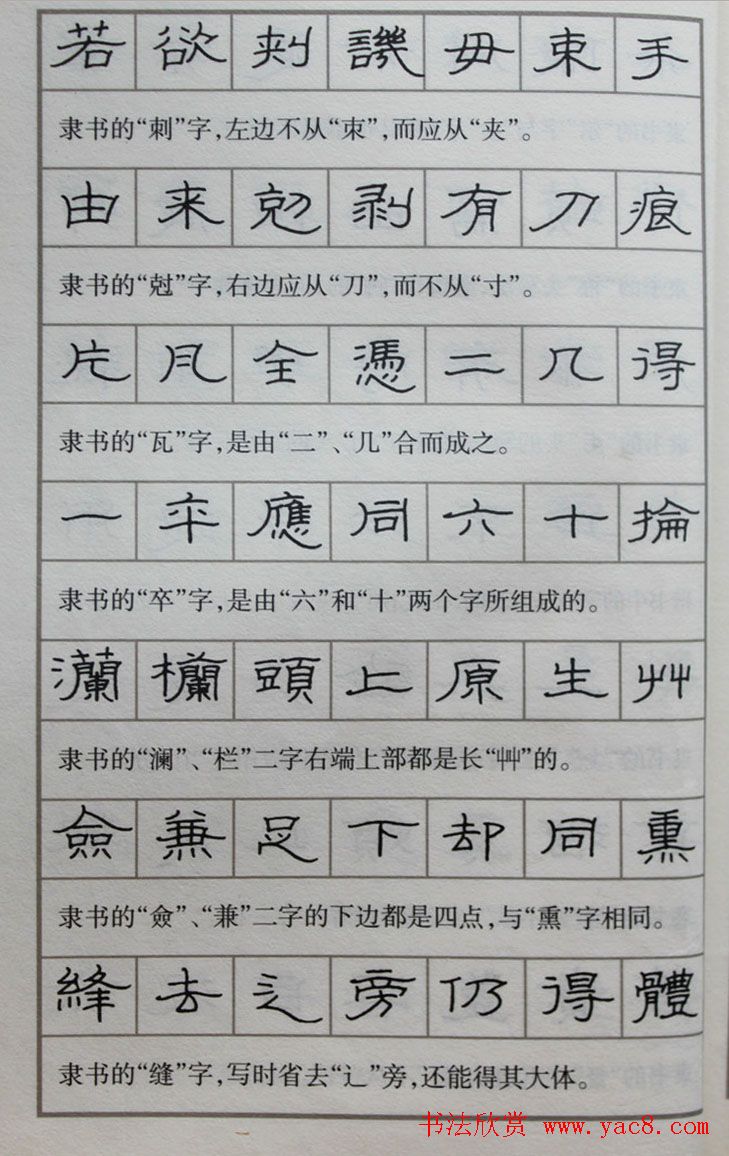 若欲刾譏毋束手
隶书的“刺”字，左边不从“朿”，而应从“夹”。
由来剋剥有刀痕
隶书的“尅”字，右边应从“刀”，而不从“寸”。
片瓦全憑二几得
隶书的“瓦”字，是由“二”、“几”合而成之。
一卒應同六十掄
隶书的“卒”字，是由“六”和“十”两个字所组成的。
瀾欄頭上原生艸
隶书的“澜”、“栏”二字右端上部都是长“艸”的。
僉兼足下却同熏
隶书的“僉”、“兼”二字的下边都是四点，与“熏”字相同。
縫去辶旁仍得體
隶书的“缝”字，写时省去“辶”旁，还能得其大体。
书法欣赏 www.yac8.com